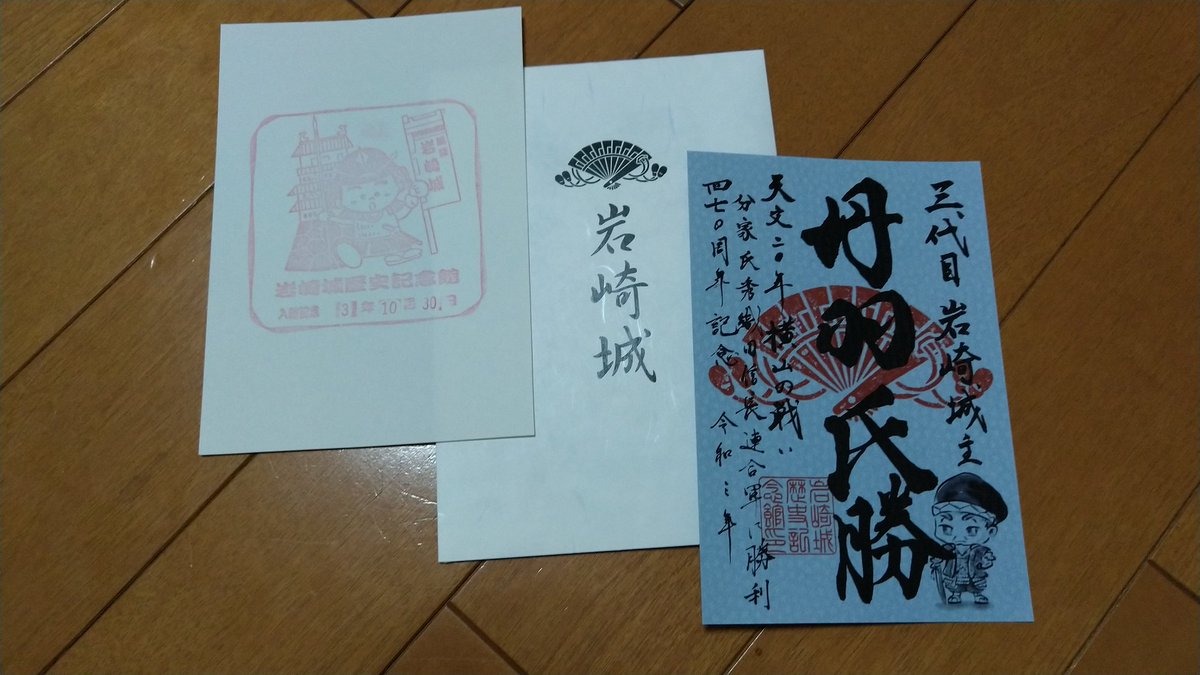 岩崎城
岩崎城歴史記念館
入館記念 3年10月30日
岩崎城
三代目 岩崎城主
丹羽氏勝
天文二〇年 横山の戦い
分家氏秀織田信長連合軍に勝利
四七〇周年記念 令和三年
岩崎城
歴史記
念館印